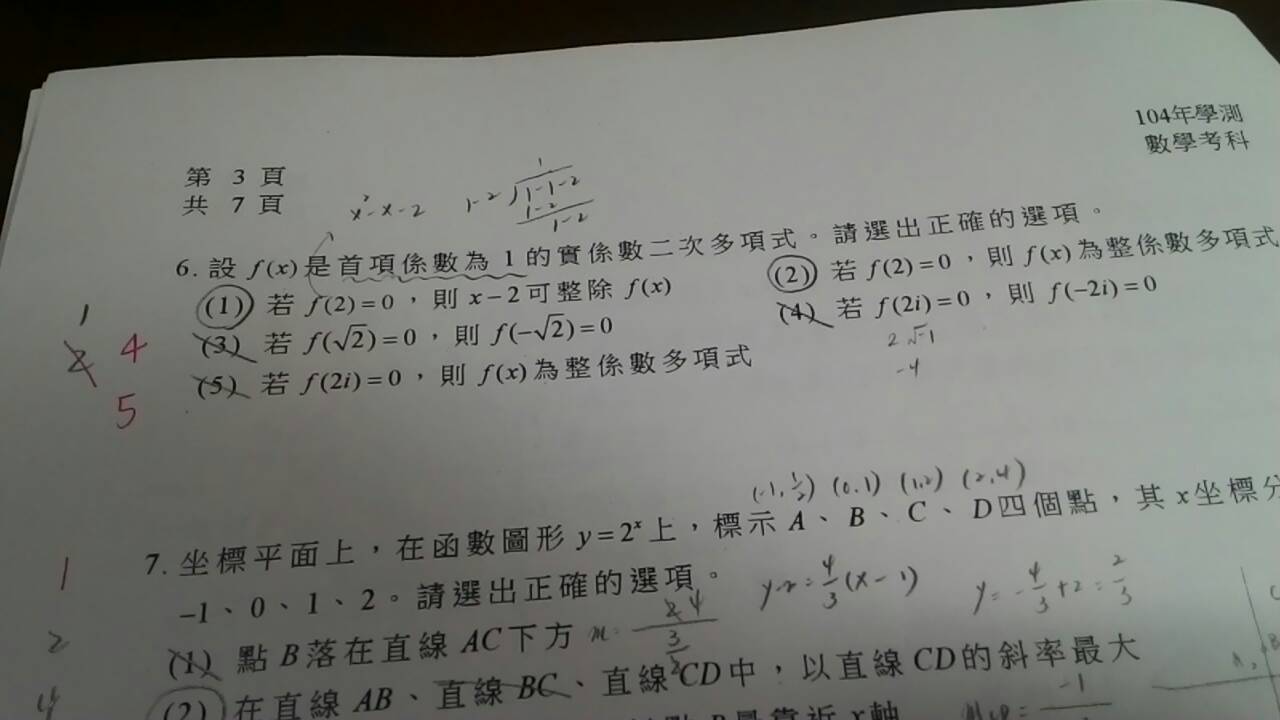 104年學測
數學考科
第 3 頁
共 7 頁
x²-x-2
1-2
1
1-1-2
1-2
1-2
6. 設 f(x) 是首項係數為 1 的實係數二次多項式。請選出正確的選項。
(1) 若 f(2)=0，則 x-2 可整除 f(x)
(2) 若 f(2)=0，則 f(x) 為整係數多項式
(3) 若 f(√2)=0，則 f(-√2)=0
(4) 若 f(2i)=0，則 f(-2i)=0
(5) 若 f(2i)=0，則 f(x) 為整係數多項式
1
2 4
5
2√-1
-4
(-1, 1/2) (0,1) (1,2) (2,4)
7. 坐標平面上，在函數圖形 y=2ˣ 上，標示 A、B、C、D四個點，其 x坐標分
-1、0、1、2。請選出正確的選項。
y-2=4/3(x-1)
y=-4/3+2=2/3
(1) 點 B落在直線 AC下方
(2) 在直線 AB、直線 BC、直線 CD中，以直線 CD的斜率最大
1
2
4